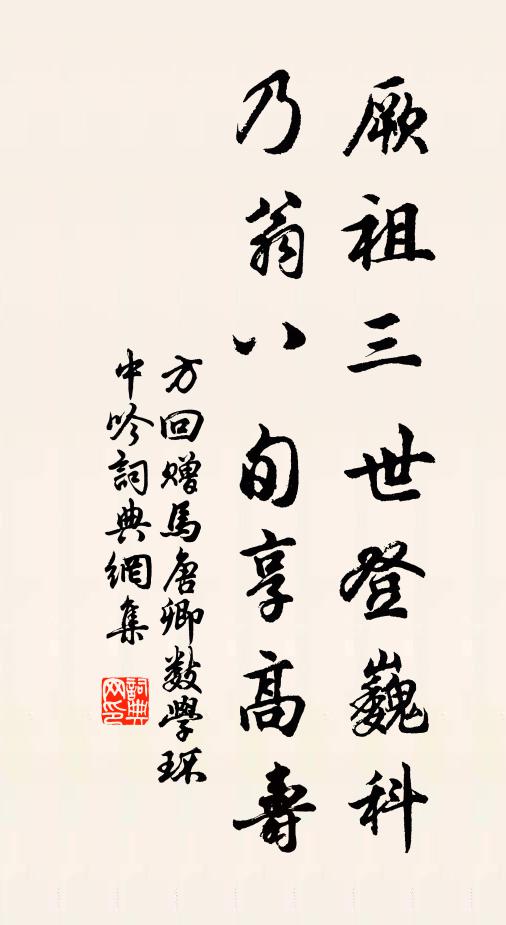 厥祖三世登巍科
乃翁八旬享高壽
方回贈馬唐卿數學環
中吟詞典網集
詞典网印